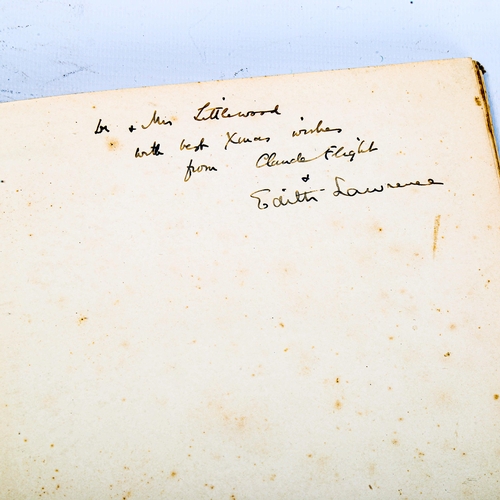 Dr & Mrs Littlewood
with best Xmas wishes
from Claude Flight
&
Edith Lawrence